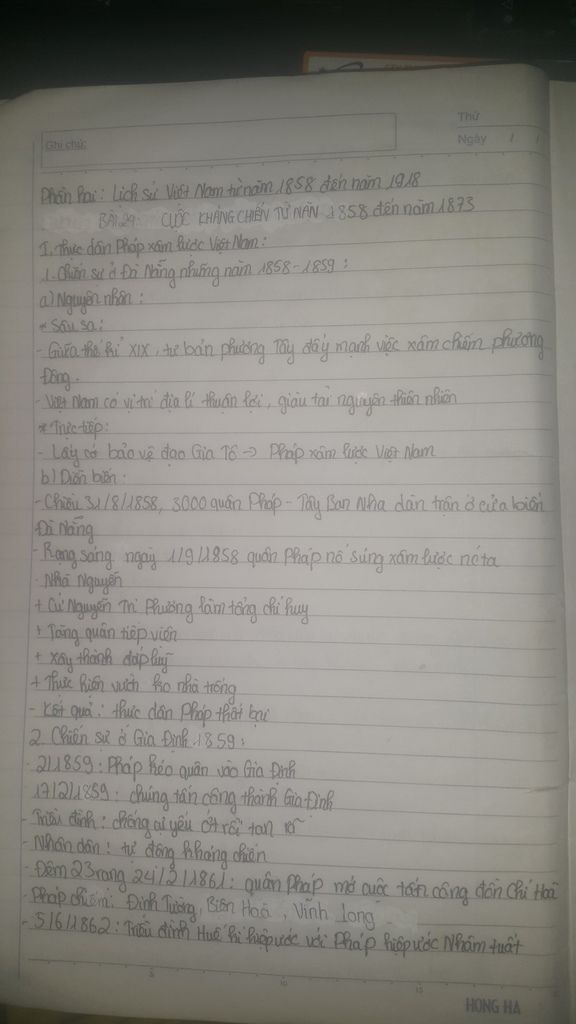 Thứ
Ghi chú:
Ngày / /
Phần hai: Lịch sử Việt Nam từ năm 1858 đến năm 1918
BÀI 24: CUỘC KHÁNG CHIẾN TỪ NĂN 1858 đến năm 1873
I. Thực dân Pháp xâm lược Việt Nam:
1. Chiến sự ở Đà Nẵng những năm 1858-1859:
a) Nguyên nhân:
* Sâu sa:
- Giữa thế kỉ XIX, tư bản phương Tây đẩy mạnh việc xâm chiếm phương
Đông.
- Việt Nam có vị trí địa lí thuận lợi, giàu tài nguyên thiên nhiên
* Trực tiếp:
- Lấy cớ bảo vệ đạo Gia Tô -> Pháp xâm lược Việt Nam
b) Diễn biến:
- Chiều 31/8/1858, 3000 quân Pháp - Tây Ban Nha dàn trận ở cửa biển
Đà Nẵng
- Rạng sáng ngày 1/9/1858 quân Pháp nổ súng xâm lược nc ta
- Nhà Nguyễn
+ Cử Nguyễn Tri Phương làm tổng chỉ huy
+ Tăng quân tiếp viện
+ Xây thành đắp lũy
+ Thực hiện vườn ko nhà trống
- Kết quả: thực dân Pháp thất bại
2. Chiến sự ở Gia Định 1859:
- 2/1859: Pháp kéo quân vào Gia Định
- 17/2/1859: chúng tấn công thành Gia Định
- Triều đình: chống cự yếu ớt rồi tan rã
- Nhân dân: tự động kháng chiến
- Đêm 23 rạng 24/2/1861: quân Pháp mở cuộc tấn công đồn Chí Hoà
- Pháp chiếm: Định Tường, Biên Hoà, Vĩnh Long
- 5/6/1862: Triều đình Huế kí hiệp ước với Pháp hiệp ước Nhâm Tuất
5 10 15
HONG HA